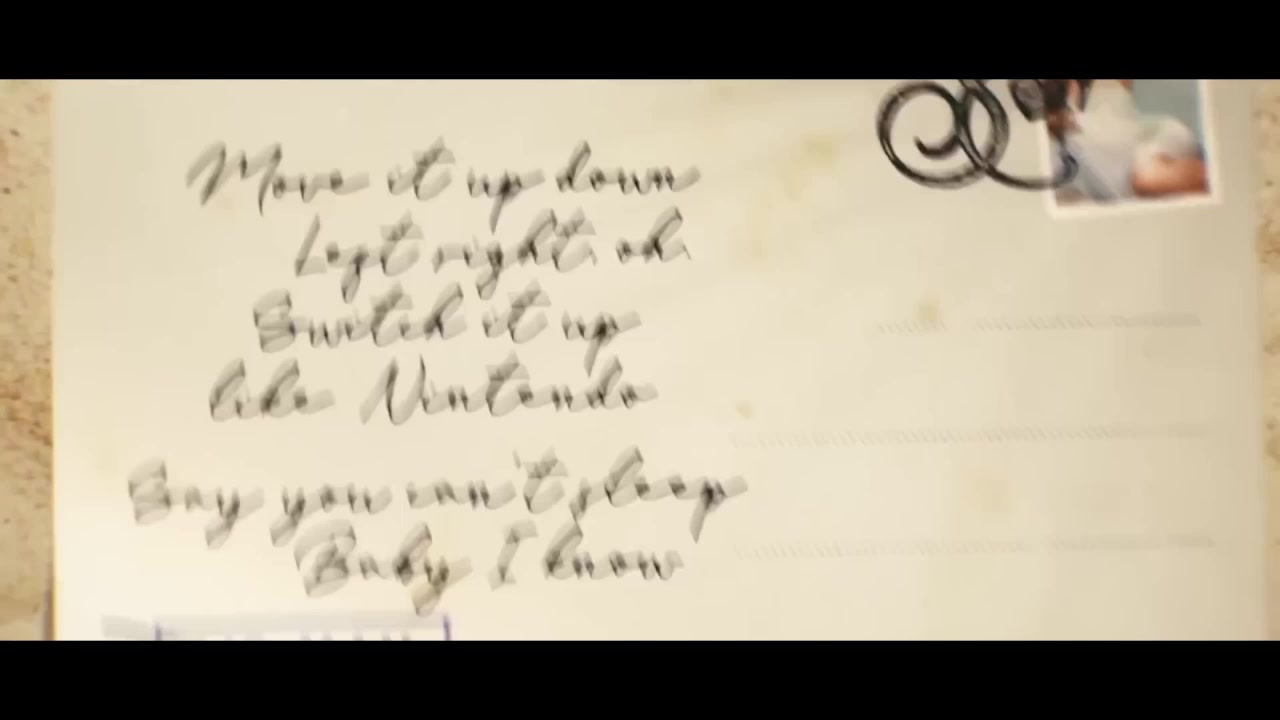 Move it up down
Left right oh
Switch it up
like Nintendo
Say you can't sleep
Baby I know